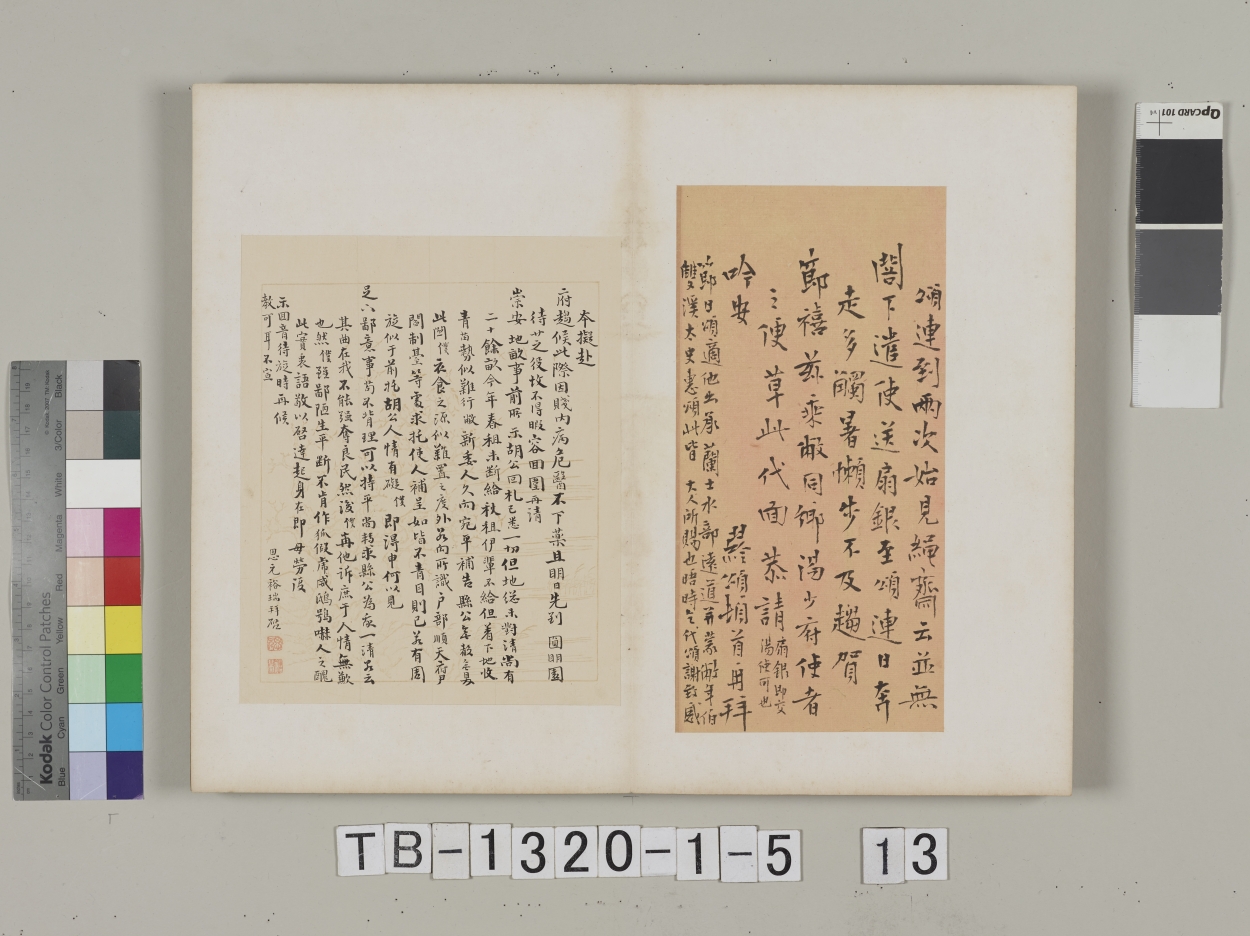 頌連到兩次始見繩齋云並無
閤下遣使送扇銀至頌連日奔
走多觸暑懶步不及趨賀
節禧茲乘敝同鄉湯少府使者
之便草此代面恭請
扇銀即交
湯使可也
吟安
頌頓首再拜
節日頌適他出承蘭士水部遠道并蒙敝年伯
雙溪太史惠頌此皆 大人所賜也晤時乞代頌謝致感
本擬赴
府趨候此際因賤內病危醫不下藥且明日先到 圓明園
待廿之役故不得暇容回圍再請
崇安 地畝事前所示胡公回札已悉一切但地從未對清尚有
二十餘畝今年春租未斷給秋租伊輩不給但着下地收
青苗勢似難行敝新委人久向宛平補告 縣公
此間僕衣食之源似難置之度外為向所識戶部順天府戶
閣制臺等處求托使人補呈如皆不青目則已若有周
旋似于前托胡公人情有礙 僕即得申何以見
足下鄙意事苟不背理可以持平尚求縣公為處一清
其曲在我不能強奪良民然後僕再他訴庶于人情無歉
也然僕雖鄙陋生平斷不肯作狐假虎威鴟鴞嚇人之醜
此實衷語敬以啓達起身在即毋勞復
示回音待旋時再候
教可耳不宣
思元裕瑞拜啟
TB-1320-1-5 13
QPCARD 101
Kodak Color Control Patches
Blue Cyan Green Yellow Red Magenta White 3/Color Black